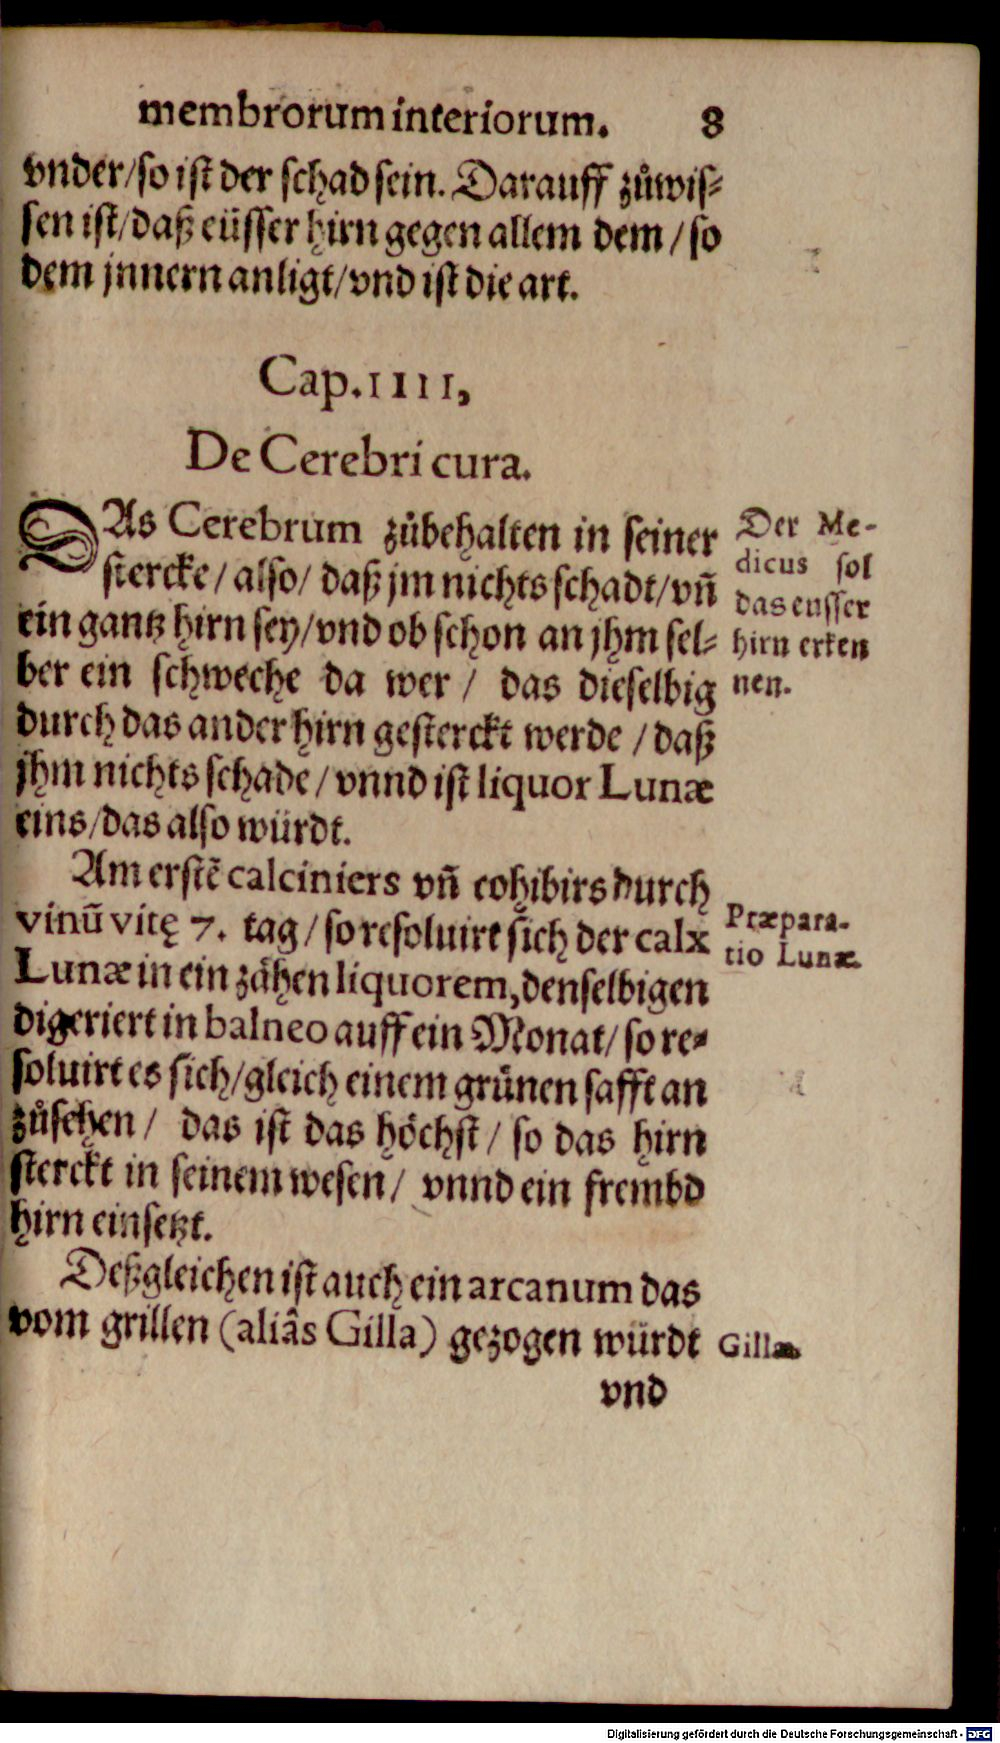 membrorum interiorum. 8
vnder/so ist der schad sein. Darauff zůwis-
sen ist/daß eüsser hirn gegen allem dem/so
dem jnnern anligt/vnd ist die art.
Cap. IIII,
De Cerebri cura.
DAs Cerebrum zůbehalten in seiner
stercke/also/daß jm nichts schadt/vñ
ein gantz hirn sey/vnd ob schon an jhm sel-
ber ein schweche da wer/ das dieselbig
durch das ander hirn gesterckt werde/daß
jhm nichts schade/vnnd ist liquor Lunæ
eins/das also würdt.
Der Me-
dicus sol
das eusser
hirn erken
nen.
Am erstẽ calciniers vñ cohibirs durch
vinũ vitę 7. tag/so resoluirt sich der calx
Lunæ in ein zähen liquorem, denselbigen
digeriert in balneo auff ein Monat/so re-
soluirt es sich/gleich einem grünen safft an
zůsehen/ das ist das höchst/ so das hirn
sterckt in seinem wesen/ vnnd ein frembd
hirn einsetzt.
Præpara-
tio Lunæ.
Deßgleichen ist auch ein arcanum das
vom grillen (aliâs Gilla) gezogen würdt
Gillæ.
vnd
Digitalisierung gefördert durch die Deutsche Forschungsgemeinschaft - DFG